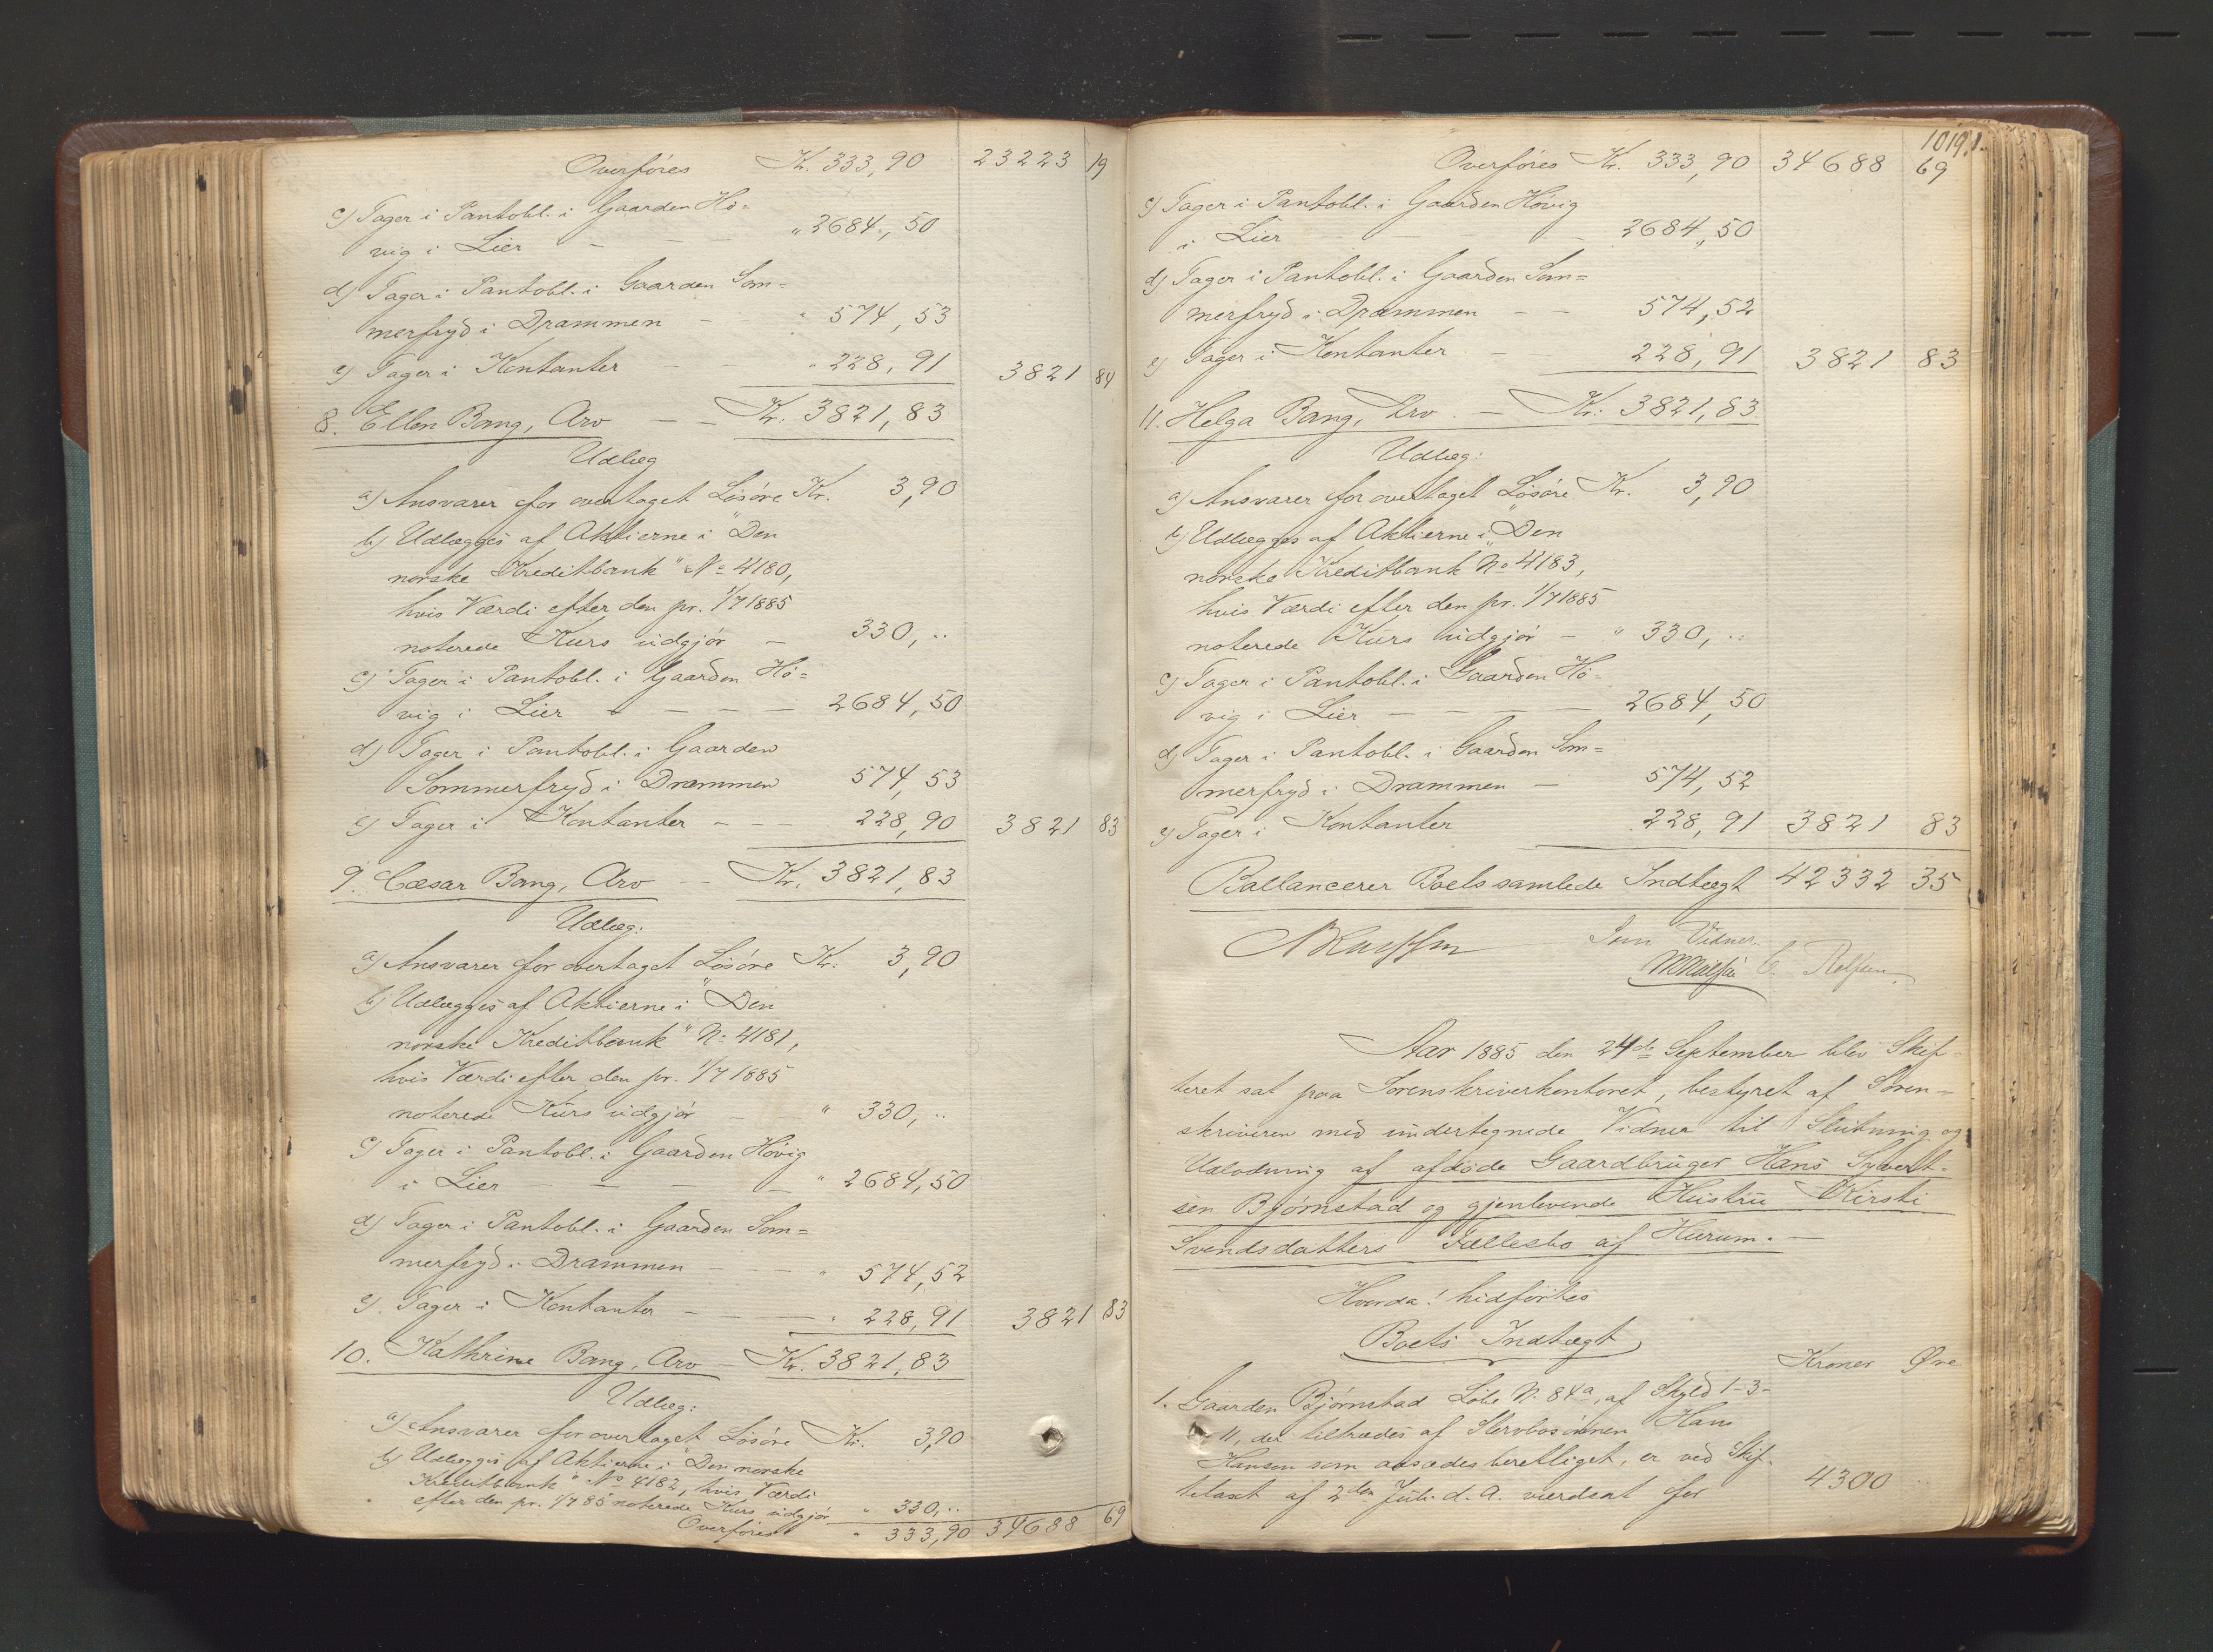 Overføres Kr. 333,90 23223 19
c) Tager i Pantobl. i Gaarden Hö=
vig i Lier - - - " 2684,50
d) Tager i Pantobl. i Gaarden Som=
merfryd i Drammen - " 574,53
e) Tager i Kontanter - - " 228,91 3821 84
8. Ellen Bang, Arv - - Kr. 3821,83
Udlæg
a) Ansvarer for overtaget Lösöre Kr. 3,90
b) Udlægges af Aktierne i "Den
norske Kreditbank" No 4180,
hvis Værdi efter den pr. 1/7 1885
noterede Kurs udgjör - 330, "
c) Tager i Pantobl. i Gaarden Hö=
vig i Lier - - - - 2684,50
d) Tager i Pantobl. i Gaarden
Sommerfryd i Drammen 574,53
e) Tager i Kontanter - - - 228,90 3821 83
9. Cæsar Bang, Arv - Kr. 3821,83
Udlæg:
a) Ansvarer for overtaget Lösöre Kr. 3,90
b) Udlægges af Aktierne i "Den
norske Kreditbank" No 4181,
hvis Værdi efter den pr. 1/7 1885
noterede Kurs udgjör - " 330, "
c) Tager i Pantobl. i Gaarden Hövig
i Lier - - - - " 2684,50
d) Tager i Pantobl. i Gaarden Som=
merfryd i Drammen - - - " 574,52
e) Tager i Kontanter - - " 228,91 3821 83
10. Kathrine Bang, Arv - Kr. 3821,83
Udlæg:
a) Ansvarer for overtaget Lösöre Kr. 3,90
b) Udlægges af Aktierne i "Den norske
Kreditbank" No 4182, hvis Værdi
efter den pr. 1/7 85 noterede Kurs udgjör " 330, "
Overföres " 333,90 34688 69
1019.
Overføres Kr. 333,90 34688 69
c) Tager i Pantobl. i Gaarden Hövig
i Lier - - - 2684,50
d) Tager i Pantobl. i Gaarden Som=
merfryd i Drammen - - 574,52
e) Tager i Kontanter - 228,91 3821 83
11. Helga Bang, Arv. - Kr. 3821,83
Udlæg:
a) Ansvarer for overtaget Lösöre Kr. 3,90
b) Udlægges af Aktierne i "Den
norske Kreditbank" No 4183,
hvis Værdi efter den pr. 1/7 1885
noterede Kurs udgjör - " 330, "
c) Tager i Pantobl. i Gaarden Hö=
vig i Lier - - - - 2684,50
d) Tager i Pantobl. i Gaarden Som=
merfryd i Drammen - 574,52
e) Tager i Kontanter 228,91 3821 83
Ballancerer Boets samlede Indtægt 42332 35
Som Vidner.
C. Rolfsen
Aar 1885 den 24de September blev Skif-
teret sat paa Sorenskriverkontoret, bestyret af Soren-
skriveren med undertegnede Vidner til Slutning og
Udlodning af afdöde Gaardbruger Hans Syvert-
sen Björnstad og gjenlevende Hustru Kirsti
Svendsdatters Fællesbo af Hurum. -
Hvorda! hidförtes
Boets Indtægt
Kroner Øre
1. Gaarden Björnstad Löbe N. 84a, af Skyld 1-3-
11, der tiltrædes af Stervbosönnen Hans
Hansen som aasædesberettiget, er ved Skif-
tetaxt af 2den Juli d. A. værdsat for 4300 "